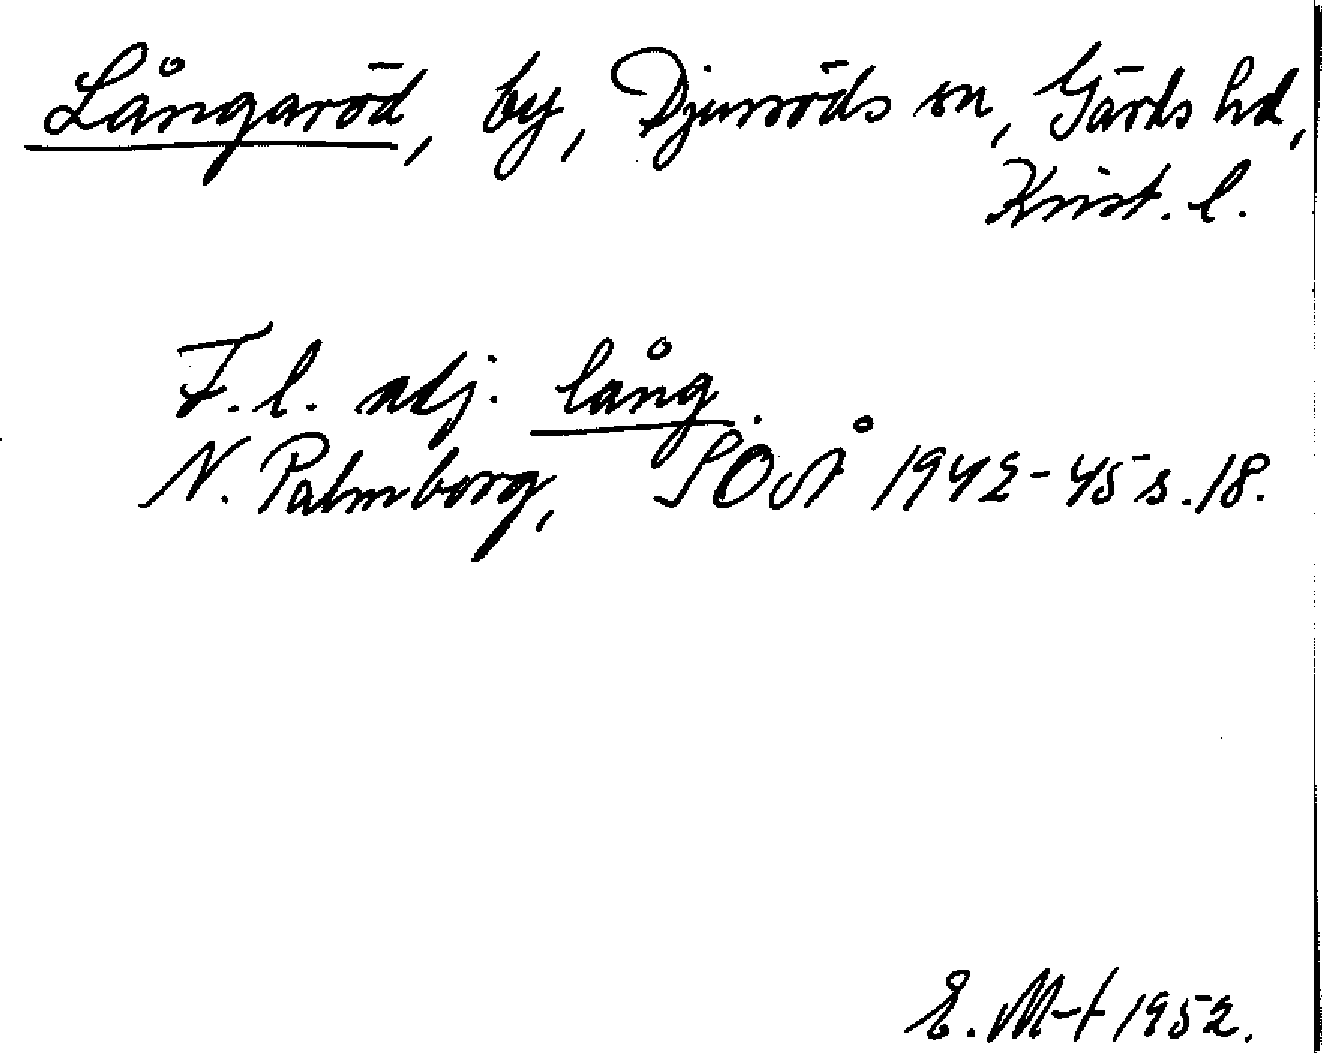 Långaröd, by, Djurröds sn, Gärds hd,
Krist. l.
F. l. adj. lång.
N. Palmborg, SOÅ 1942-45 s. 18.
E. M-t 1952.